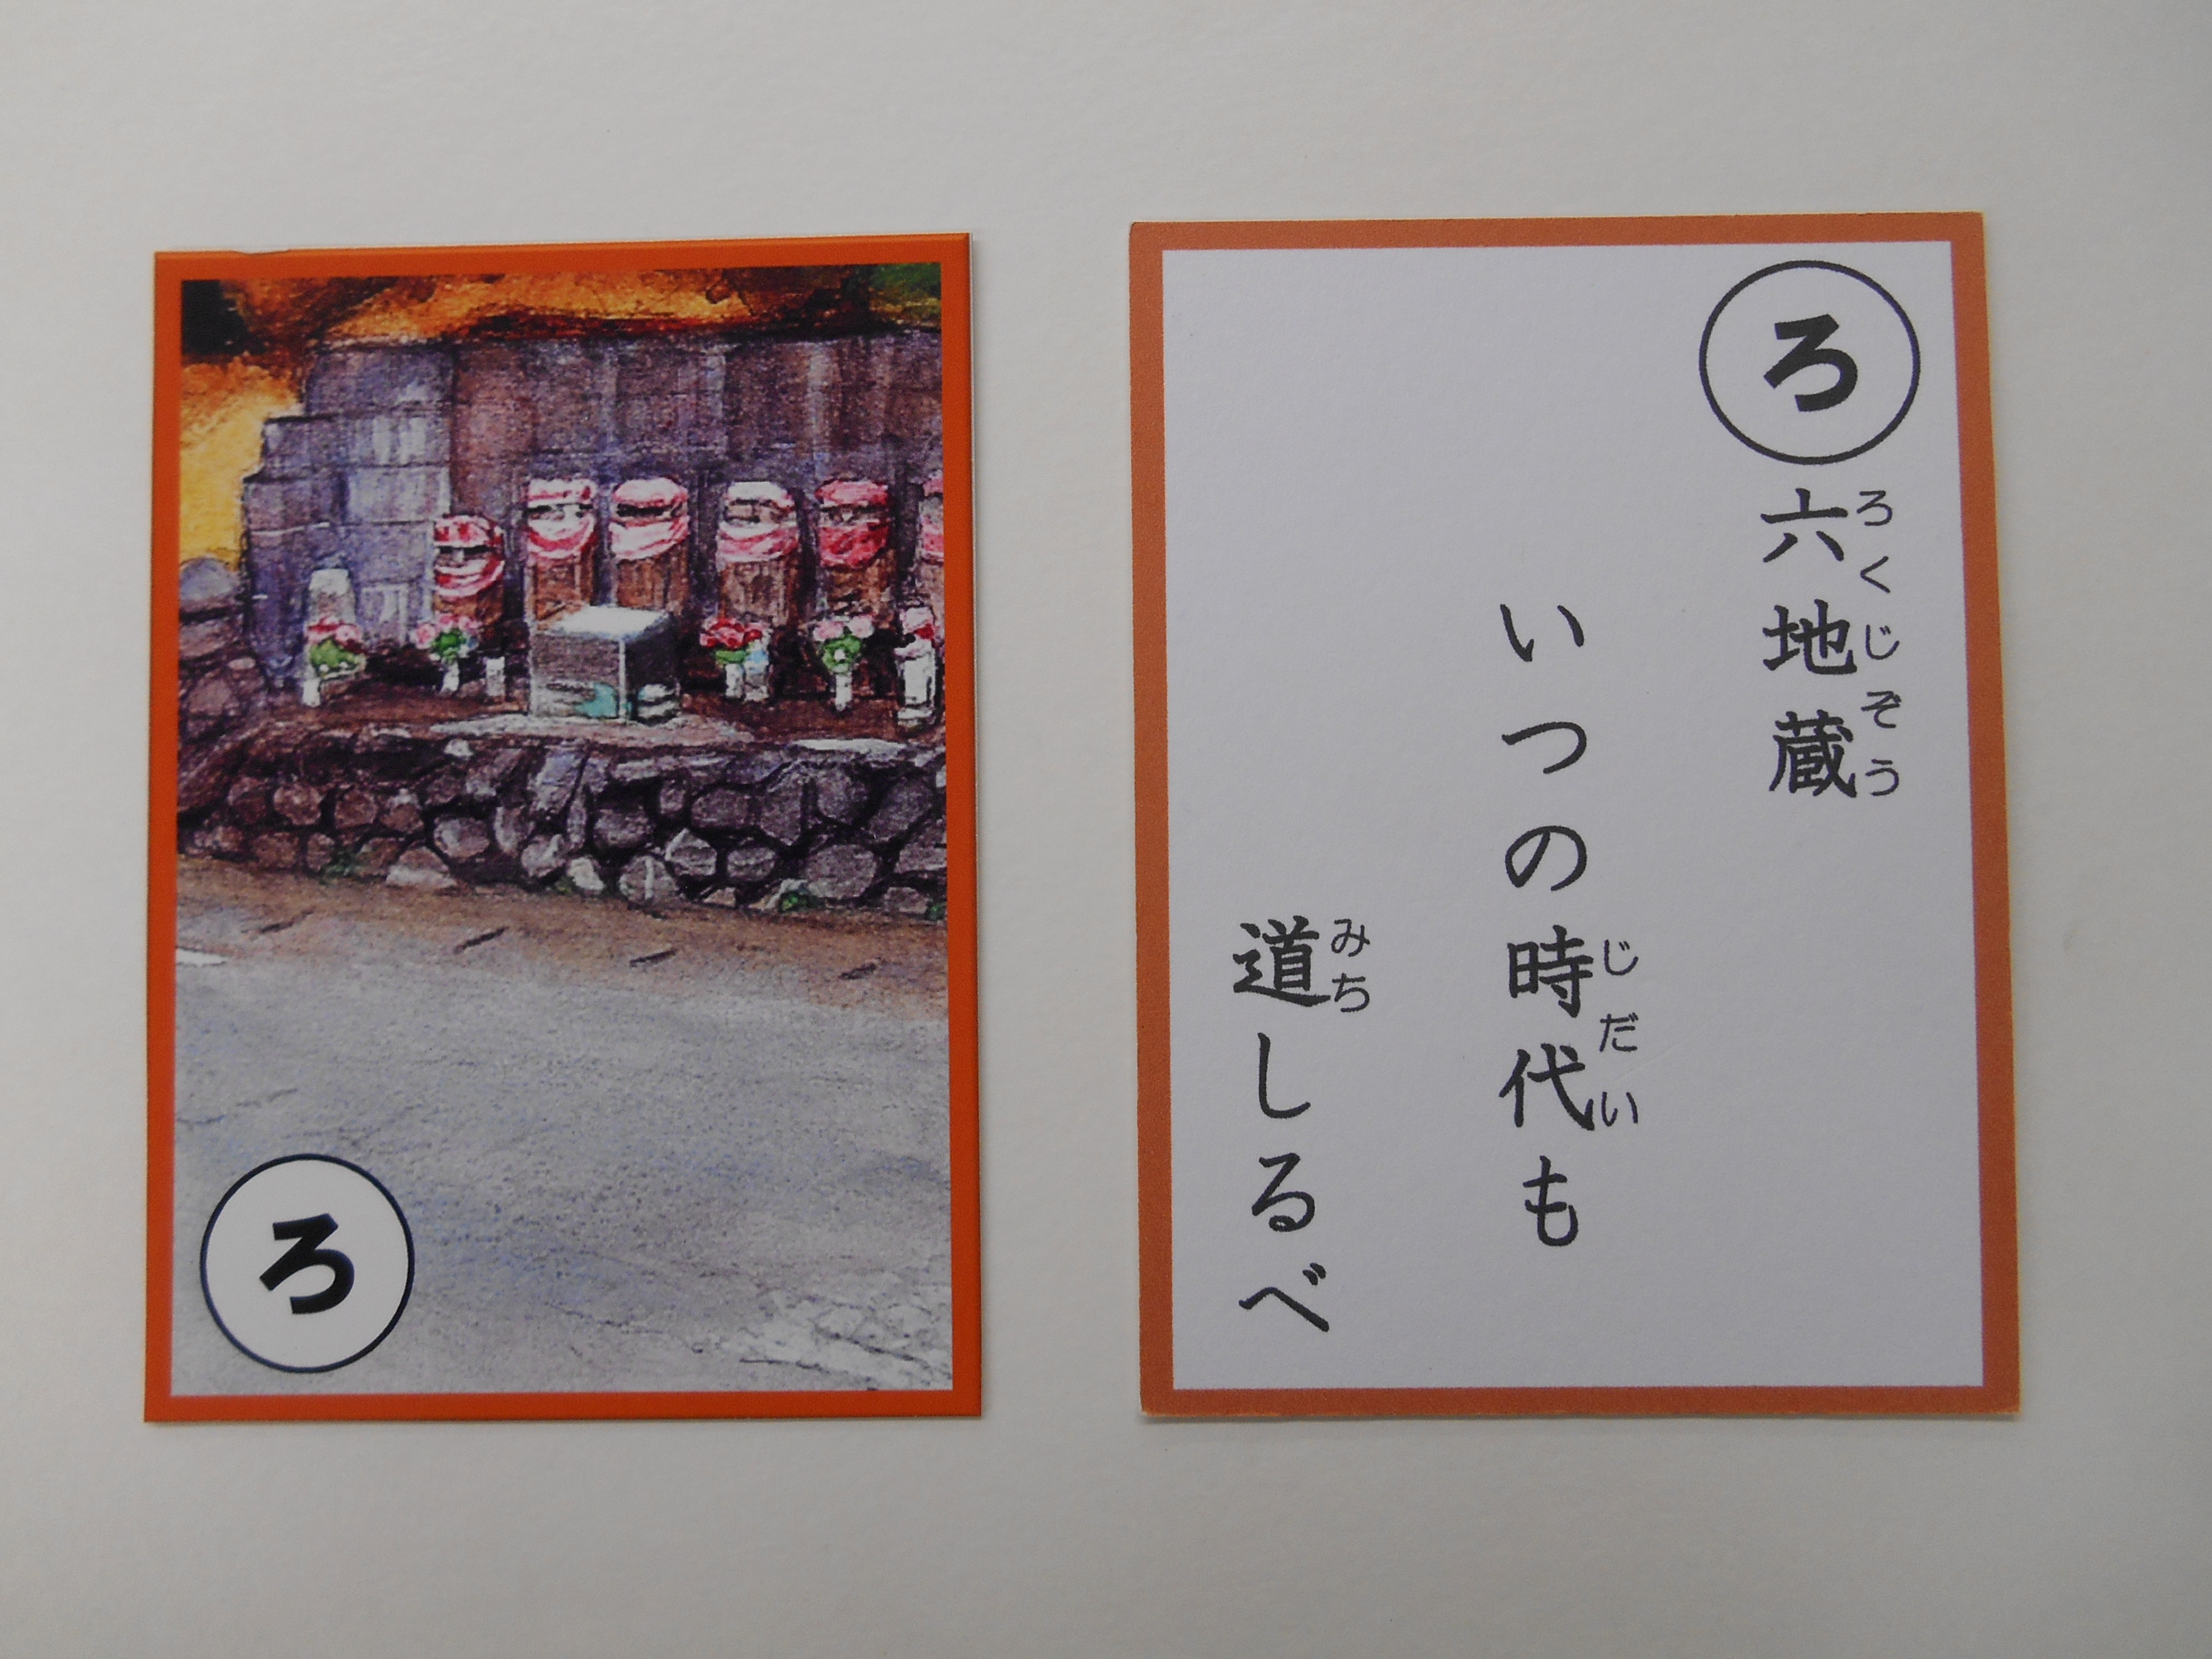 ろ
ろ
六地蔵
ろくじぞう
いつの時代も
じだい
道しるべ
みち